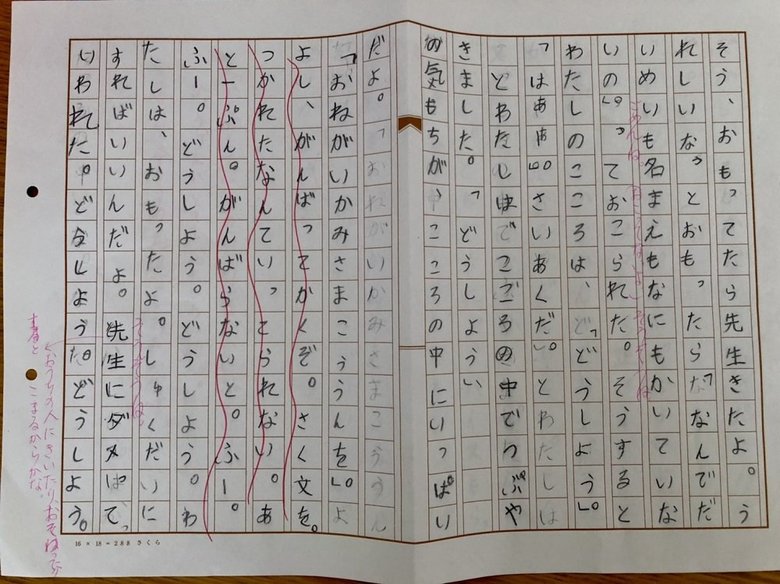 そう、おもってたら先生きたよ。う
れしいな。」とおもったら「なんでだ
いめいも名まえもなにもかいていな
いの。」っておこられた。そうすると
わたしのこころは、「どうしよう」。
「はぁぁ。」さいあくだ。とわたしは
とわたしはこころの中でつぶや
きました。「どうしよう」い
の気もちが、こころの中にいっぱい
だよ。「おねがいかみさまこううん
「おねがいかみさまこううんを。」よ
よし、がんばってかくぞ。さく文を。
つかれたなんていってられない。あ
と一ぷん。がんばらないと。ふー。
ふー。どうしよう。どうしよう。わ
たしは、おもったよ。しゅくだいに
すればいいんだよ。先生にダメはて、
いわれた。どうしようた。どうしよう。
ごめんね
おうちの人にきいたり、
すると
こまるからかな
16×18=288 さくら